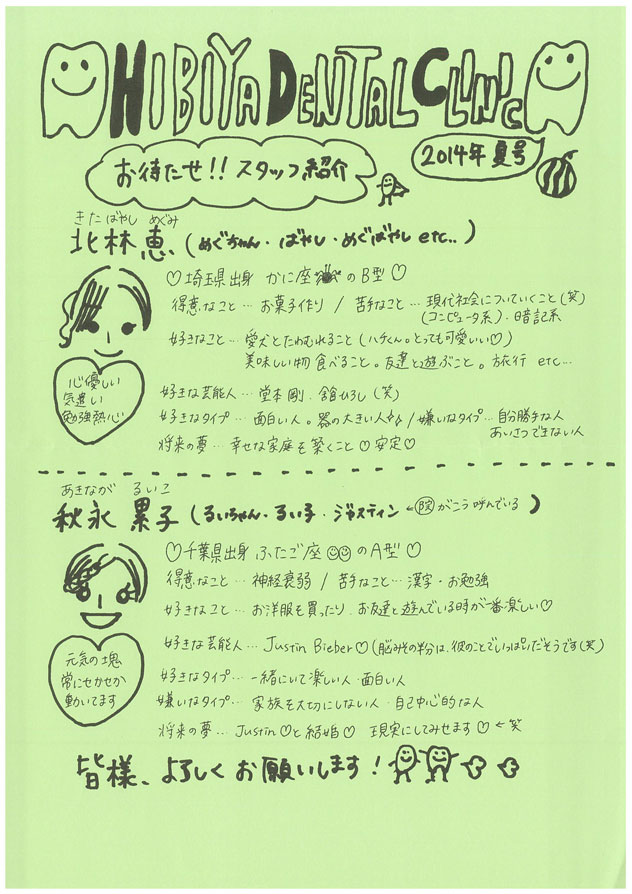 HIBIYA DENTAL CLINIC
2014年 夏号
お待たせ!! スタッフ紹介
きたばやし めぐみ
北林 恵 (めぐちゃん・ばやし・めぐばやし etc..)
♡埼玉県出身 かに座 のB型♡
得意なこと… お菓子作り / 苦手なこと… 現代社会についていくこと(笑)
(コンピュータ系)・暗記系
好きなこと… 愛犬とたわむれること(ハチくん。とっても可愛いい♡)
美味しい物 食べること。友達と遊ぶこと。旅行 etc…
好きな芸能人… 堂本剛. 舘ひろし(笑)
好きなタイプ… 面白い人。器の大きい人♪♪ / 嫌いなタイプ… 自分勝手な人
あいさつできない人
将来の夢… 幸せな家庭を築くこと♡安定♡
心優しい
気遣い
勉強熱心
あきなが るいこ
秋永 累子 (るいちゃん・るい子・ジャスティン ←院がこう呼んでいる)
♡千葉県出身 ふたご座 のA型♡
得意なこと… 神経衰弱 / 苦手なこと… 漢字・お勉強
好きなこと… お洋服を買ったり、お友達と遊んでいる時が一番楽しい♡
好きな芸能人… Justin Bieber♡(脳みその半分は、彼のことでいっぱいだそうです(笑)
好きなタイプ… 一緒にいて楽しい人・面白い人
嫌いなタイプ… 家族を大切にしない人・自己中心的な人
将来の夢… Justin♡と結婚♡ 現実にしてみせます♡ ←笑
元気の塊
常にせかせか
動いてます
皆様、よろしくお願いします!